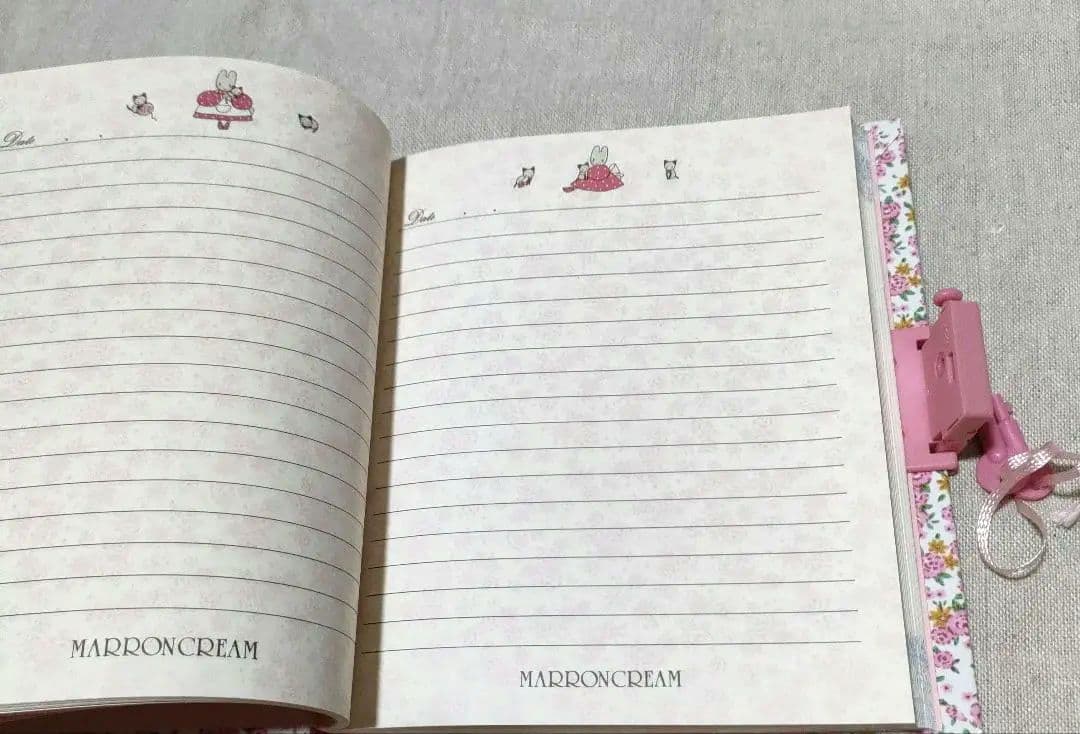 Date . .
MARRONCREAM
Date . .
MARRONCREAM